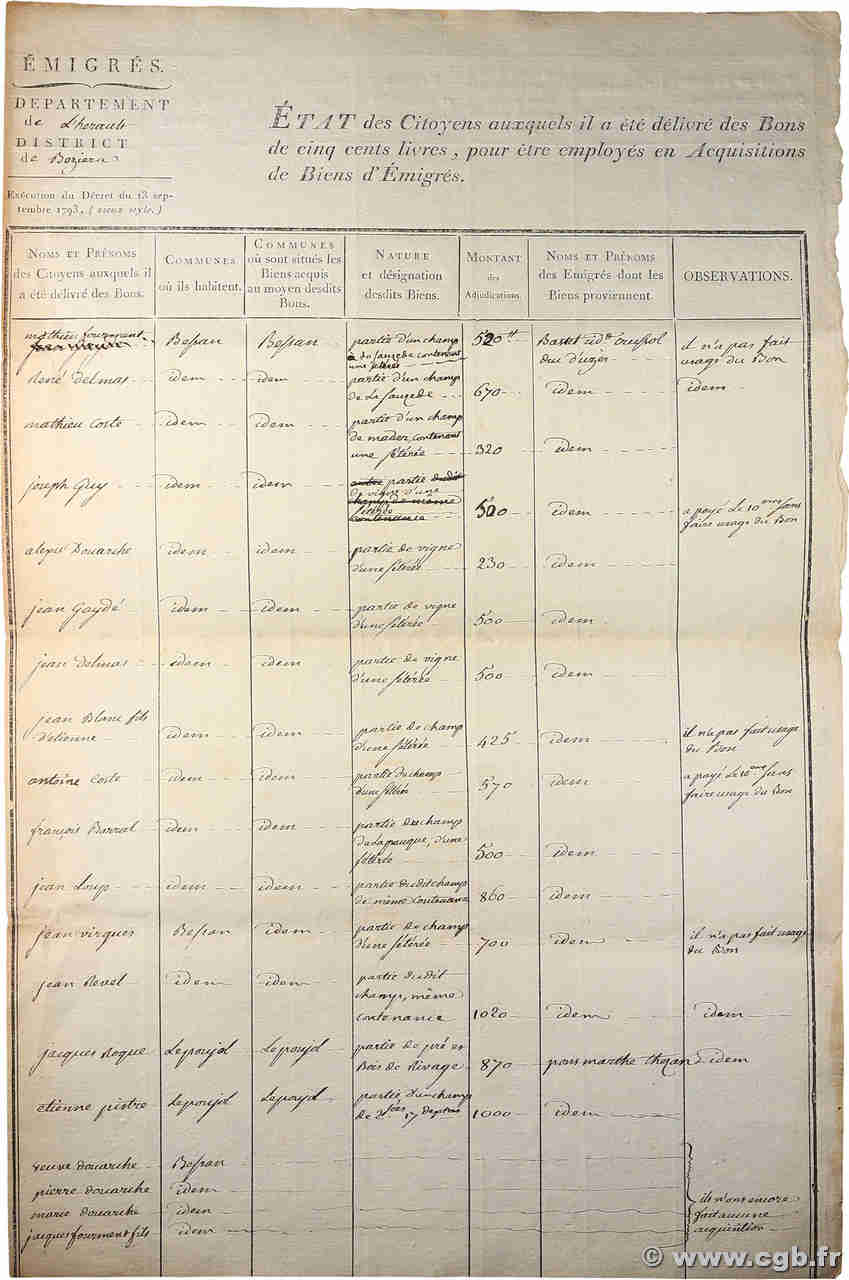 ÉMIGRÉS.
DEPARTEMENT
de Lherault
DISTRICT
de Beziers
Exécution du Décret du 13 sep-
tembre 1793, (vieux style.)
ÉTAT des Citoyens auxquels il a été délivré des Bons
de cinq cents livres, pour être employés en Acquisitions
de Biens d'Émigrés.
NOMS ET PRÉNOMS
des Citoyens auxquels il
a été délivré des Bons.
COMMUNES
où ils habitent.
COMMUNES
où sont situés les
Biens acquis
au moyen desdits
Bons.
NATURE
et désignation
desdits Biens.
MONTANT
des
Adjudications.
NOMS ET PRÉNOMS
des Emigrés dont les
Biens proviennent.
OBSERVATIONS.
mathieu fourment
Bessan
Bessan
partie d'un champ
de sauzede contenant
une sétérée
520tt
crussol
duc d'uzes
il n'a pas fait
usage du Bon
René delmas
idem
idem
partie d'un champ
de La sauzede
670
idem
idem
mathieu Coste
idem
idem
partie d'un champ
de mader, contenant
une sétérée
320
idem
joseph Guy
idem
idem
partie dudit
de vigne d'une
champ de meme
contenance
500
idem
a payé le 10me sans
faire usage du Bon
alexis Douarche
idem
idem
partie de vigne
d'une sétérée
230
idem
jean Gaydé
idem
idem
partie de vigne
d'une sétérée
500
idem
jean delmas
idem
idem
partie de vigne
d'une sétérée
500
idem
jean Blanc fils
d'etienne
idem
idem
partie de champ
d'une sétérée
425
idem
il n'a pas fait usage
du Bon
antoine Coste
idem
idem
partie du champ
d'une sétérée
570
idem
a payé le 10me sans
faire usage du Bon
françois Barral
idem
idem
partie des champ
d'une
sétérée
500
idem
jean Loup
idem
idem
partie dudit champ
de même contenance
860
idem
jean virgues
Bessan
idem
partie de champ
d'une sétérée
700
idem
il n'a pas fait usage
du Bon
jean Revel
idem
idem
partie dudit
champ, même
contenance
1020
idem
idem
jacques Roque
Lepoujol
Lepoujol
partie de pré et
Bois de Rivage
870
pons marthe thezan
idem
etienne pistre
Lepoujol
Lepoujol
partie d'un champ
de 2 17 dextres
1000
idem
veuve douarche
Bessan
pierre douarche
idem
marie douarche
idem
jacques fourment fils
idem
ils n'ont encore
fait aucune
acquisition
© www.cgb.fr